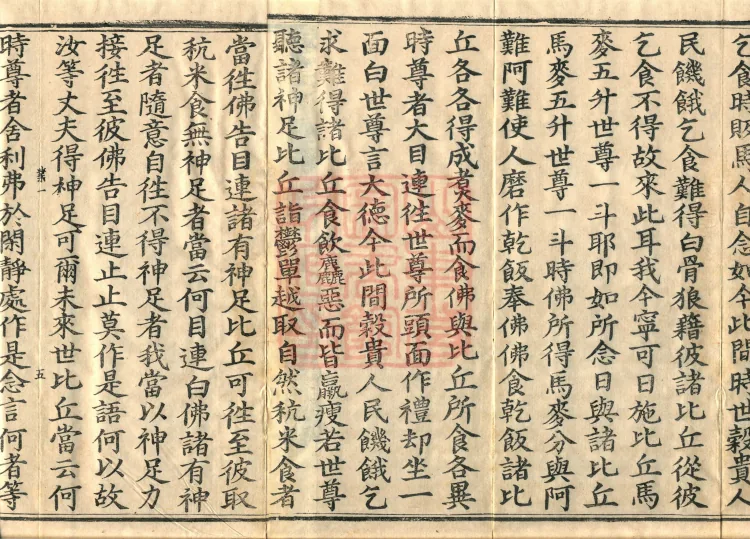 乞食時販馬人自念如今此間時世穀貴人
民饑餓乞食難得白骨狼藉彼諸比丘從彼
乞食不得故來此耳我今寧可日施比丘馬
麥五升世尊一斗耶即如所念日與諸比丘
馬麥五升世尊一斗時佛所得馬麥分與阿
難阿難使人磨作乾飯奉佛佛食乾飯諸比
丘各各得成煑麥而食佛與比丘所食各異
時尊者大目連往世尊所頭面作禮却坐一
面白世尊言大德今此間穀貴人民饑餓乞
求難得諸比丘食飲麤惡而皆羸瘦若世尊
聽諸神足比丘詣欝單越取自然秔米食者
當往佛告目連諸有神足比丘可往至彼取
秔米食無神足者當云何目連白佛諸有神
足者隨意自往不得神足者我當以神足力
接往至彼佛告目連止止莫作是語何以故
汝等丈夫得神足可爾未來世比丘當云何
業一 五
時尊者舍利弗於閑靜處作是念言何者等